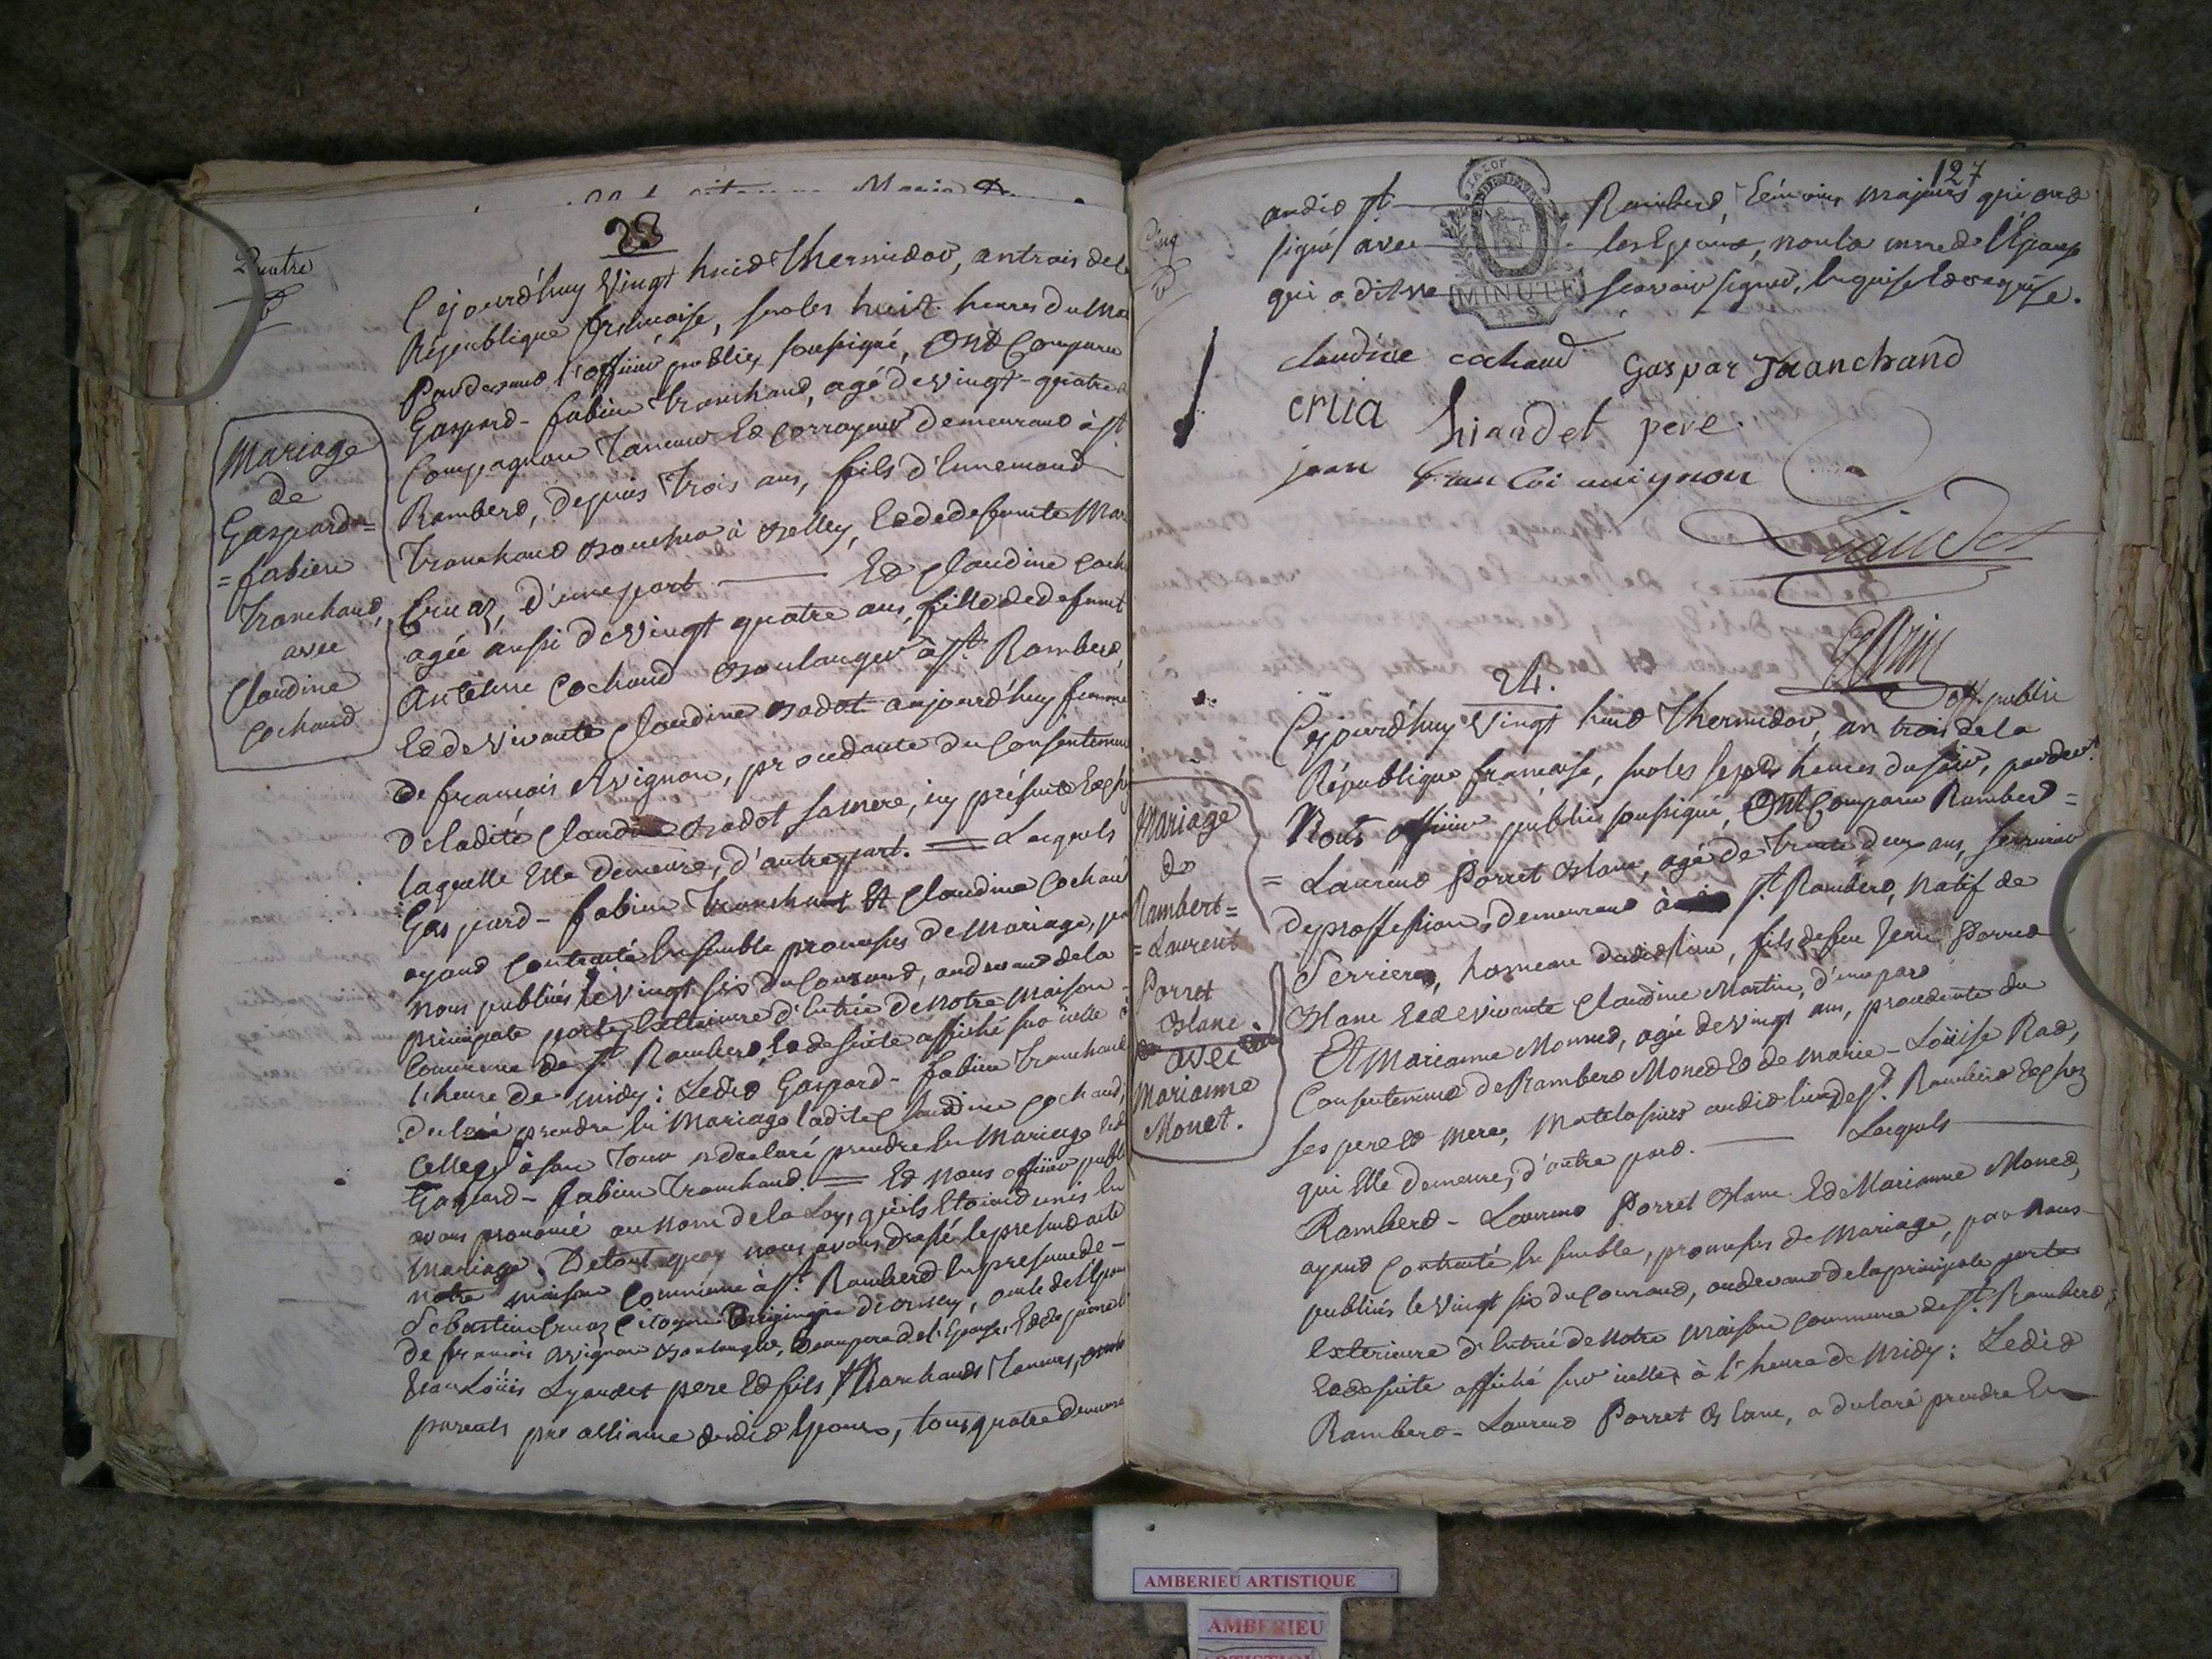 23
Quatre
Cejourd'huy Vingt huit Thermidor, an trois de la
République française, sur les huit heures du ma
Pardevant l'officier public soussigné, Ont Comparu
Gaspard-fabien Tranchand, agé de vingt-quatre
Compagnon Taneur Et Corroyeur demeurant à st.
Rambert, depuis Trois ans, fils d'Ennemond
Tranchand Boucher à Belley, Et de defunte Mar
Cruaz, d'une part — Et Claudine Coch
agée aussi de Vingt quatre ans, fille de defunt
Antelme Cochand Boulanger à st. Rambert,
Et de vivante Claudine Badot aujourd'huy femme
de francois Avignon, procedante du Consentement
de ladite Claudine Badot sa mere, icy présente Et ch
laquelle Elle demeure, d'autre part. = Lesquels
Gaspard-fabien Tranchant Et Claudine Cochand
ayant Contracté Ensemble promesses de Mariage, par
nous publiées le Vingt six du Courant, audevant de la
principale porte Exterieure d'Entrée de notre maison
Commune de st. Rambert, Et de suite affiché sur icelle à
l'heure de midy : Ledit Gaspard-fabien Tranchand
declaré prendre En Mariage ladite Claudine Cochand,
Celle cy à son Tour a declaré prendre En Mariage led
Gaspard-fabien Tranchand. = Et nous officier publ
avons prononcé au nom de la Loy, qu'ils Etoient unis En
Mariage. De tout quoy nous avons dressé le present acte
notre maison Commune à st. Rambert En presence de
Sebastien Cruaz Citoyen
de francois Avignon Boulanger, Beaupere de l'Epouse, Et de
Jean Loüis Lyaudet pere Et fils, Marchands Taneurs,
parents par alliance dudit Epoux, tous quatre demeura
Mariage
de
Gaspard=
=fabien
Tranchand,
avec
Claudine
Cochand
127
Cinq
audit st. — Rambert, témoins majeurs qui ont
signé avec — les Epoux, non la mere de l'Epouse
qui a dit ne — sçavoir signer, Enquise Et requise.
MINUTE
claudine cochand Gaspar Tranchand
cruia
liaudet pere
jean francoi auignon
Liaudet
off. public
24.
Cejourd'huy Vingt huit Thermidor, an trois de la
République française, sur les sept heures du soir, pardev.t
Nous officier public soussigné, Ont Comparu Rambert=
= Laurent Porret Blanc, agé de Trente deux ans, serrurier
de proffession, demeurant à st. Rambert, natif de
Serrieres, hameau dudit lieu, fils de feu Jean Porret
Blanc Et de vivante Claudine Martin, d'une part
Et Marianne Monet, agée de vingt ans, procedente du
Consentement de Rambert Monet Et de Marie-Loüise Rat,
ses pere Et mere, Matelassiers audit lieu de st. Rambert Et chez
qui Elle demeure, d'autre part. — Lesquels —
Rambert-Laurent Porret Blanc Et Marianne Monet,
ayant Contracté Ensemble, promesses de Mariage, par nous
publiées le Vingt six du Courant, audevant de la principale porte
Exterieure d'Entrée de notre maison Commune de st. Rambert,
Et de suite affiché sur icelle, à l'heure de Midy : Ledit
Rambert-Laurent Porret Blanc, a declaré prendre En
Mariage
de
Rambert=
=Laurent
Porret
Blanc.
avec
Marianne
Monet.
AMBERIEU ARTISTIQUE
AMBERIEU
ARTISTIQUE